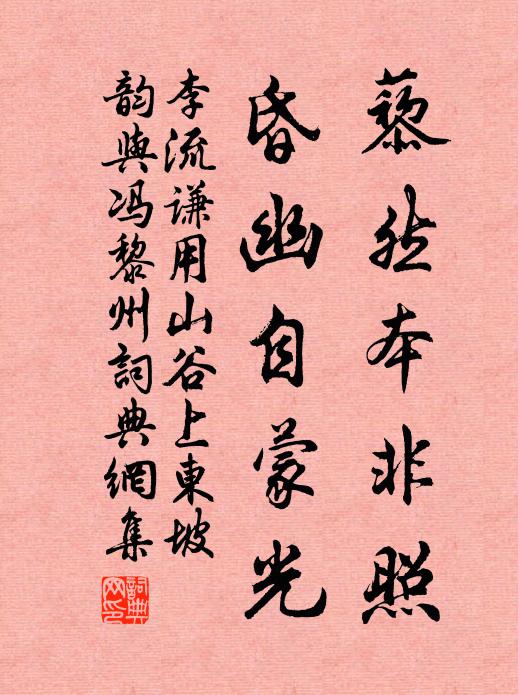 藜然本非照
昏幽自蒙光
李流謙用山谷上東坡
韵與冯黎州詞典網集
詞典网印